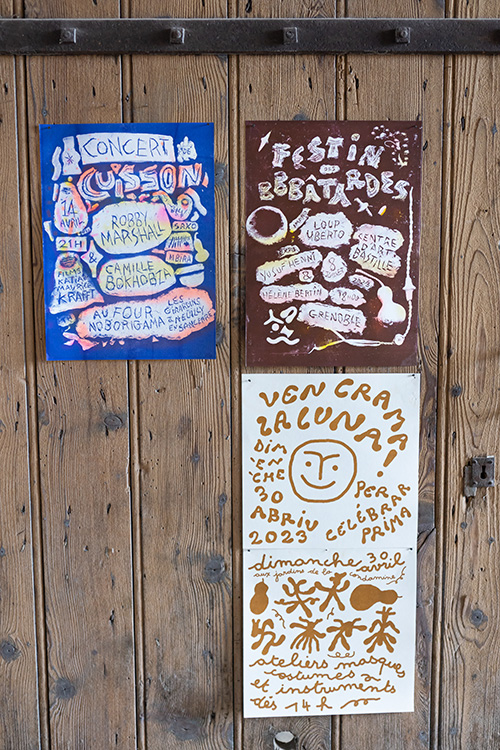 CONCERT
DE
CUISSON
14
AVRIL
21H
ROBBY
MARSHALL
SAXO
&
CAMILLE
BOKHOBZA
MBIRA
FILMS
KATIA &
MAURICE
KRAFFT
AU FOUR
NOBORIGAMA
FESTIN
DES
BEBÂTARDES
LOUP
UBERTO
CENTRE
D'ART
BASTILLE
YUSUF HENNI
&
HÉLÈNE BERTIN
EXPO
8
GRENOBLE
VEN CRAMA
LA LUNA!
DIM
'EN
'CHE
30
ABRIU
2023
PER
CÉLÉBRAR
PRIMA
dimanche 30 avril
aux jardins de la condamine
ateliers masques
costumes
et instruments
dès 14h